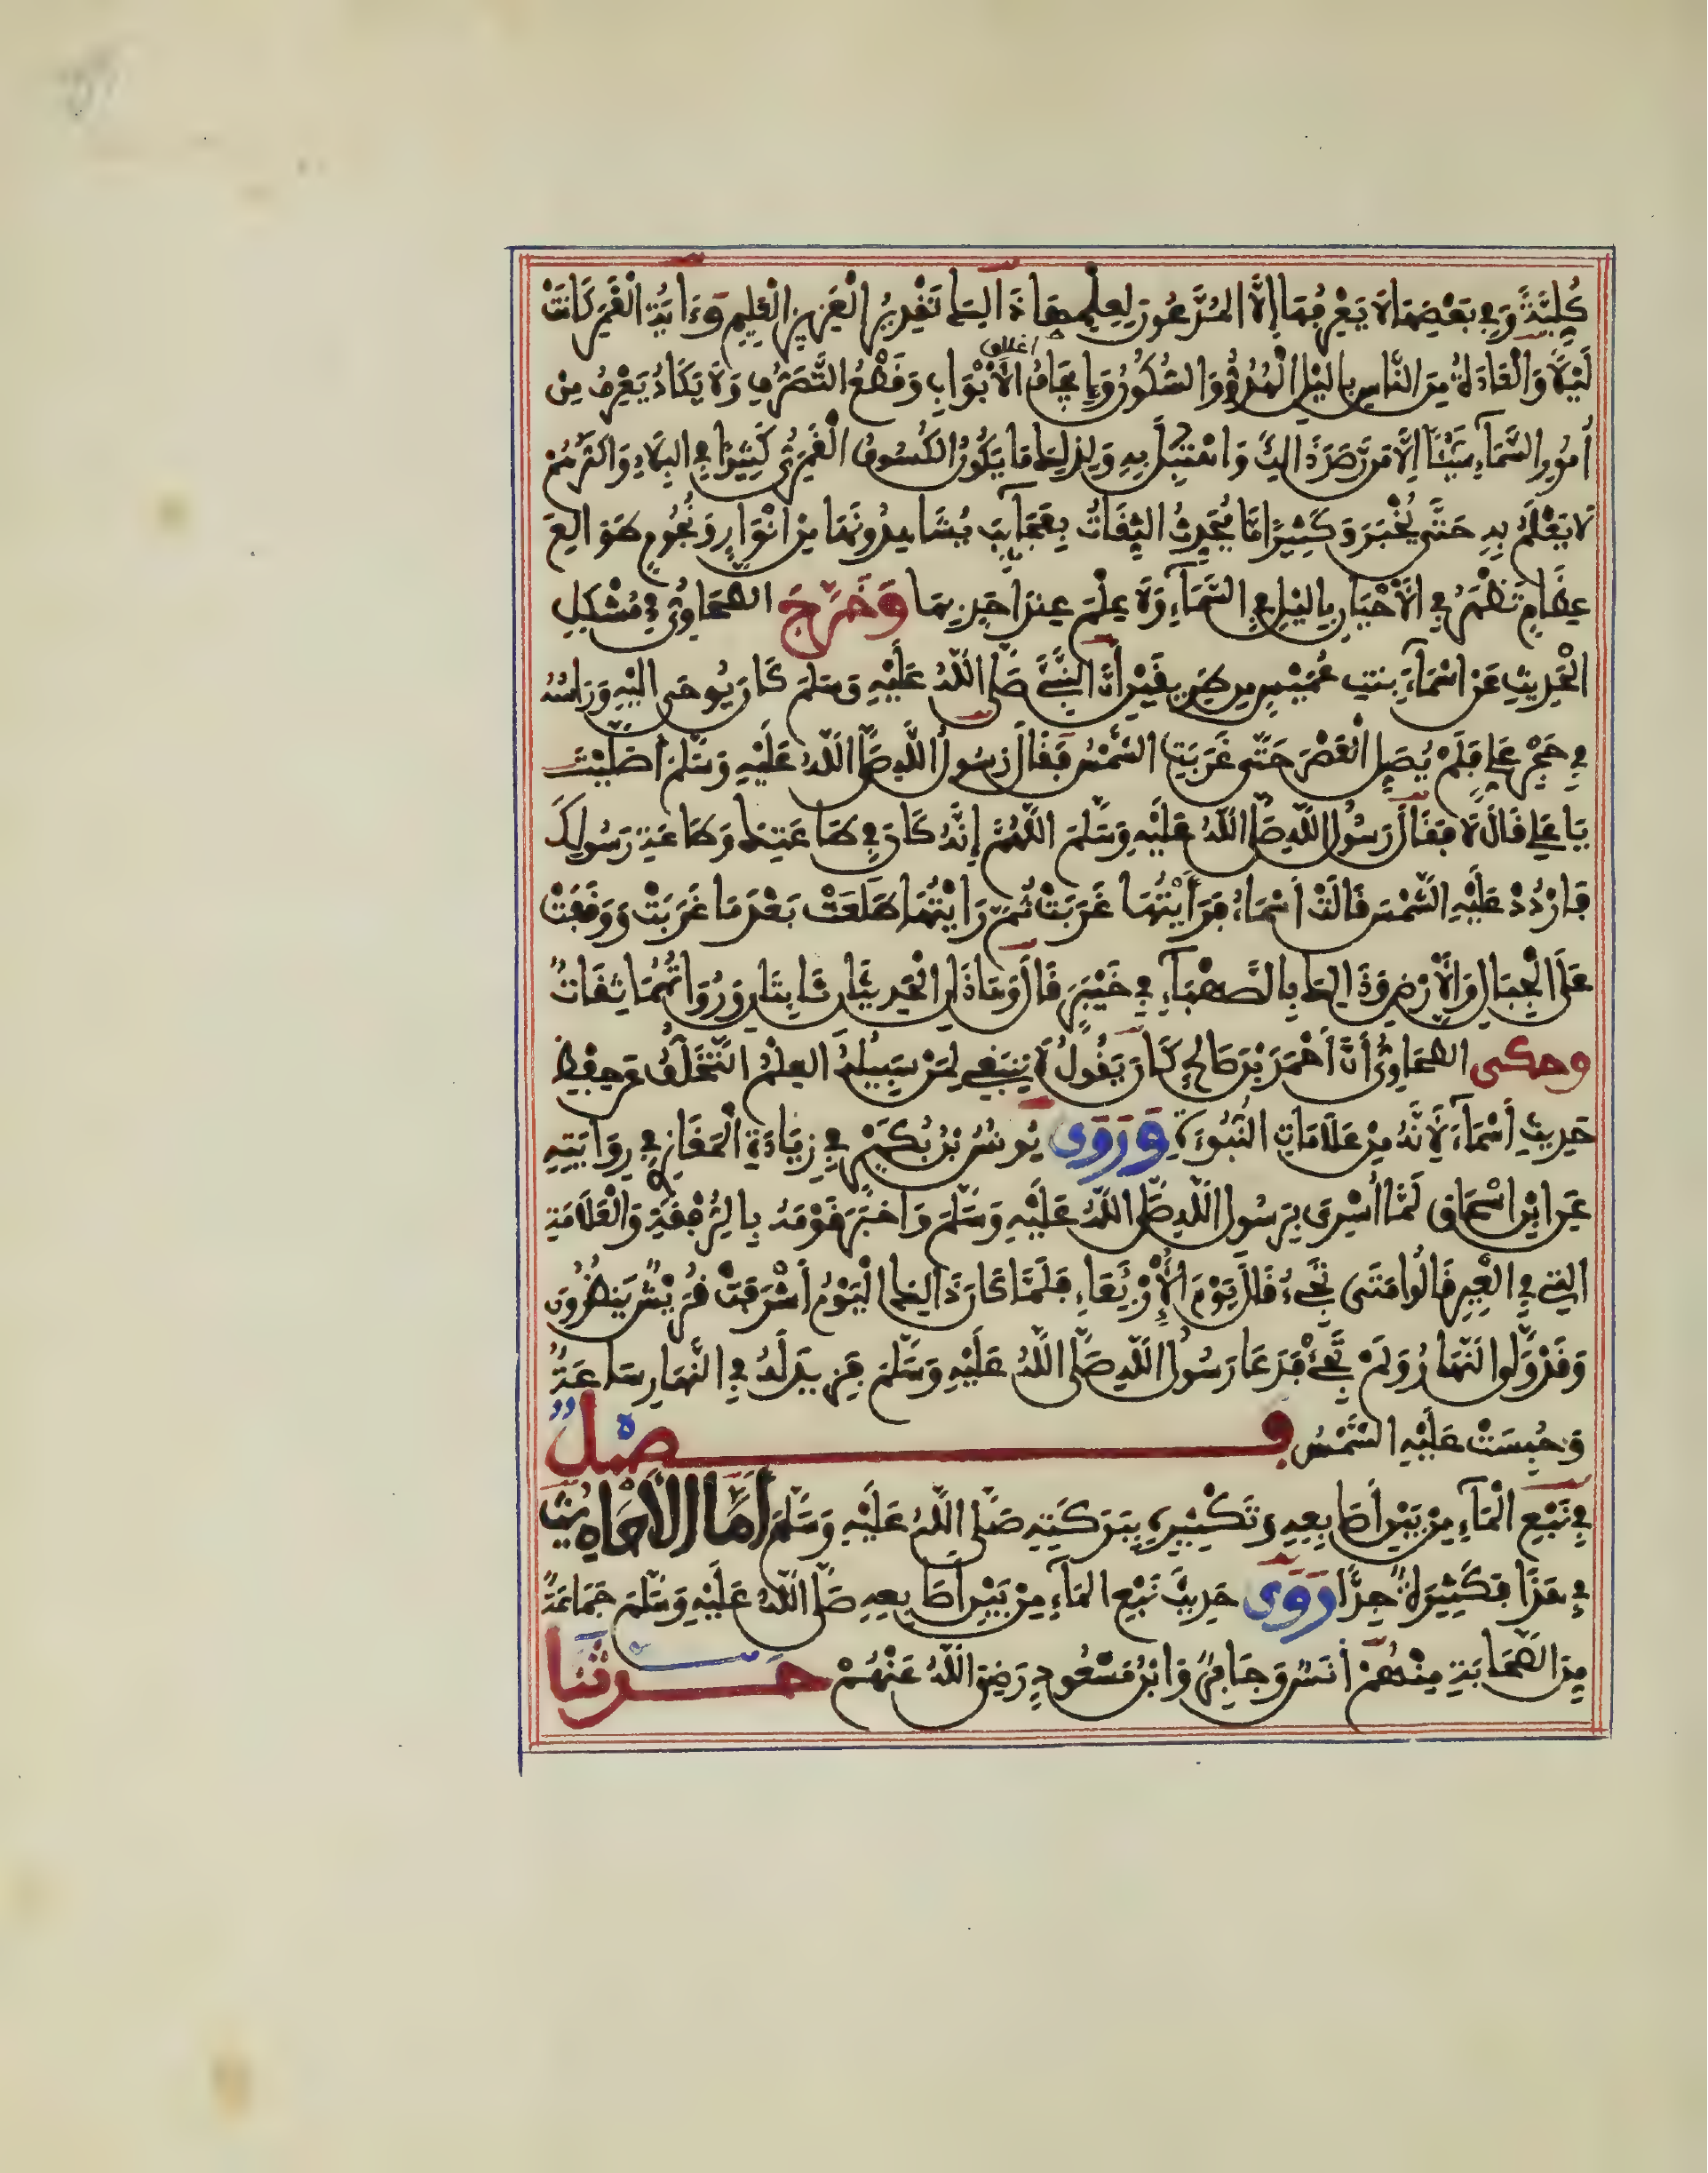 كُلِّيَّةً وَفِي بَعْضِهَا لَا يَعْرِفُهَا إِلَّا الْمُدَّعُونَ لِعِلْمِهَا ذَالِكَ تَقْدِيرُ الْعَزِيزِ الْعَلِيمِ وَءَايَةُ الْقَمَرِ كَانَتْ
لَيْلًا وَالْعَادَةُ مِنَ النَّاسِ بِاليْلِ الْهُدُوُّ وَالسُّكُونُ وَإِيجَافُ الْأَبْوَابِ وَقَطْعُ التَّصَرُّفِ وَلَا يَكَادُ يَعْرِفُ مِنْ
اغلاق
أُمُورِ السَّمَاءِ شَيْئًا إِلَّا مَن رَّصَدَ ذَالِكَ وَاهْتَبَلَ بِهِ وَلِذَلِكَ مَا يَكُونُ الكُسُوفُ الْقَمَرِيُّ كَثِيرًا فِي البِلَادِ وَاكْثَرُهُمْ
لَا يَعْلَمُ بِهِ حَتَّى يُخْبَرَ وَكَثِيرًا مَا يُحَدِّثُ الثِّقَاتُ بِعَجَآئِبَ يُشَاهِدُونَهَا مِنْ انْوَارٍ وَنُجُومٍ طَوَالِعَ
عِظَامٍ تَظْهَرُ فِي الْأَحْيَانِ بِاليْلِ فِي السَّمَاءِ وَلَا عِلْمَ عِندَ احَدٍ بِهَا وَخَرَّجَ الطَّحَاوِيُّ فِي مُشْكِلِ
الْحَدِيثِ عَنْ اسْمَآءَ بِنتِ عُمَيْسٍ مِن طَرِيقَيْنِ أَنَّ النَّبِيَّ صَلَّى اللَّهُ عَلَيْهِ وَسَلَّمَ كَانَ يُوحَى إِلَيْهِ وَرَاسُهُ
فِي حَجْرِ عَلِي فَلَمْ يُصَلِّ الْعَصْرَ حَتَّى غَرَبَتِ الشَّمْسُ فَقَالَ رَسُولُ اللَّهِ صَلَّى اللَّهُ عَلَيْهِ وَسَلَّمَ أَصَلَّيْتَ
يَا عَلِي قَالَ لَا فَقَالَ رَسُولُ اللَّهِ صَلَّى اللَّهُ عَلَيْهِ وَسَلَّمَ اللَّهُمَّ إِنَّهُ كَانَ فِي طَاعَتِكَ وَطَاعَةِ رَسُولِكَ
فَارْدُدْ عَلَيْهِ الشَّمْسَ قَالَتْ أَسْمَاءُ فَرَأَيْتُهَا غَرَبَتْ ثُمَّ رَايْتُهَا طَلَعَتْ بَعْدَ مَا غَرَبَتْ وَوَقَفَتْ
عَلَى الْجِبَالِ وَالْأَرْضِ وَذَالِكَ بِالصَّهْبَآءِ فِي خَيْبَرَ قَالَ وَهَاذَانِ الْحَدِيثَانِ ثَابِتَانِ وَرُوَاتُهُمَا ثِقَاتٌ
وحكى الطَّحَاوِيُّ أَنَّ أَحْمَدَ بْنَ صَالِحٍ كَانَ يَقُولُ لَا يَنبَغِي لِمَنْ سَبِيلُهُ العِلْمُ التَّخَلُّفُ عَنْ حِفْظِ
حَدِيثِ أَسْمَآءَ لِأَنَّهُ مِنْ عَلَامَاتِ النُّبُوءَةِ وَرَوَى يُونُسُ بْنُ بُكَيْرٍ فِي زِيَادَةِ الْمَغَازِي فِي رِوَايَتِهِ
عَنِ ابْنِ اسْحَاقَ لَمَّا أُسْرِيَ بِرَسُولِ اللَّهِ صَلَّى اللَّهُ عَلَيْهِ وَسَلَّمَ وَاخْبَرَ قَوْمَهُ بِالرُّفْقَةِ وَالْعَلَامَةِ
التِي فِي الْعِيرِ قَالُوا مَتَى تَجِيءُ قَالَ يَوْمَ الْأَرْبَعَاءِ فَلَمَّا كَانَ ذَالِكَ الْيَوْمُ أَشْرَفَتْ قُرَيْشٌ يَنظُرُونَ
وَقَدْ وَلَّى النَّهَارُ وَلَمْ تَجِئْ فَدَعَا رَسُولُ اللَّهِ صَلَّى اللَّهُ عَلَيْهِ وَسَلَّمَ فَزِيدَ لَهُ فِي النَّهَارِ سَاعَةٌ
وَحُبِسَتْ عَلَيْهِ الشَّمْسُ فَصْلٌ
فِي نَبْعِ الْمَآءِ مِنْ بَيْنِ أَصَابِعِهِ وَتَكْثِيرِهِ بِبَرَكَتِهِ صَلَّى اللَّهُ عَلَيْهِ وَسَلَّمَ أَمَّا الْأَحَادِيثُ
فِي هَذَا فَكَثِيرَةٌ جِدًّا رَوَى حَدِيثَ نَبْعِ المَآءِ مِنْ بَيْنِ أَصَابِعِهِ صَلَّى اللَّهُ عَلَيْهِ وَسَلَّمَ جَمَاعَةٌ
مِنَ الصَّحَابَةِ مِنْهُمْ أَنَسٌ وَجَابِرٌ وَابْنُ مَسْعُودٍ رَضِيَ اللَّهُ عَنْهُمْ حَدَّثَنَا